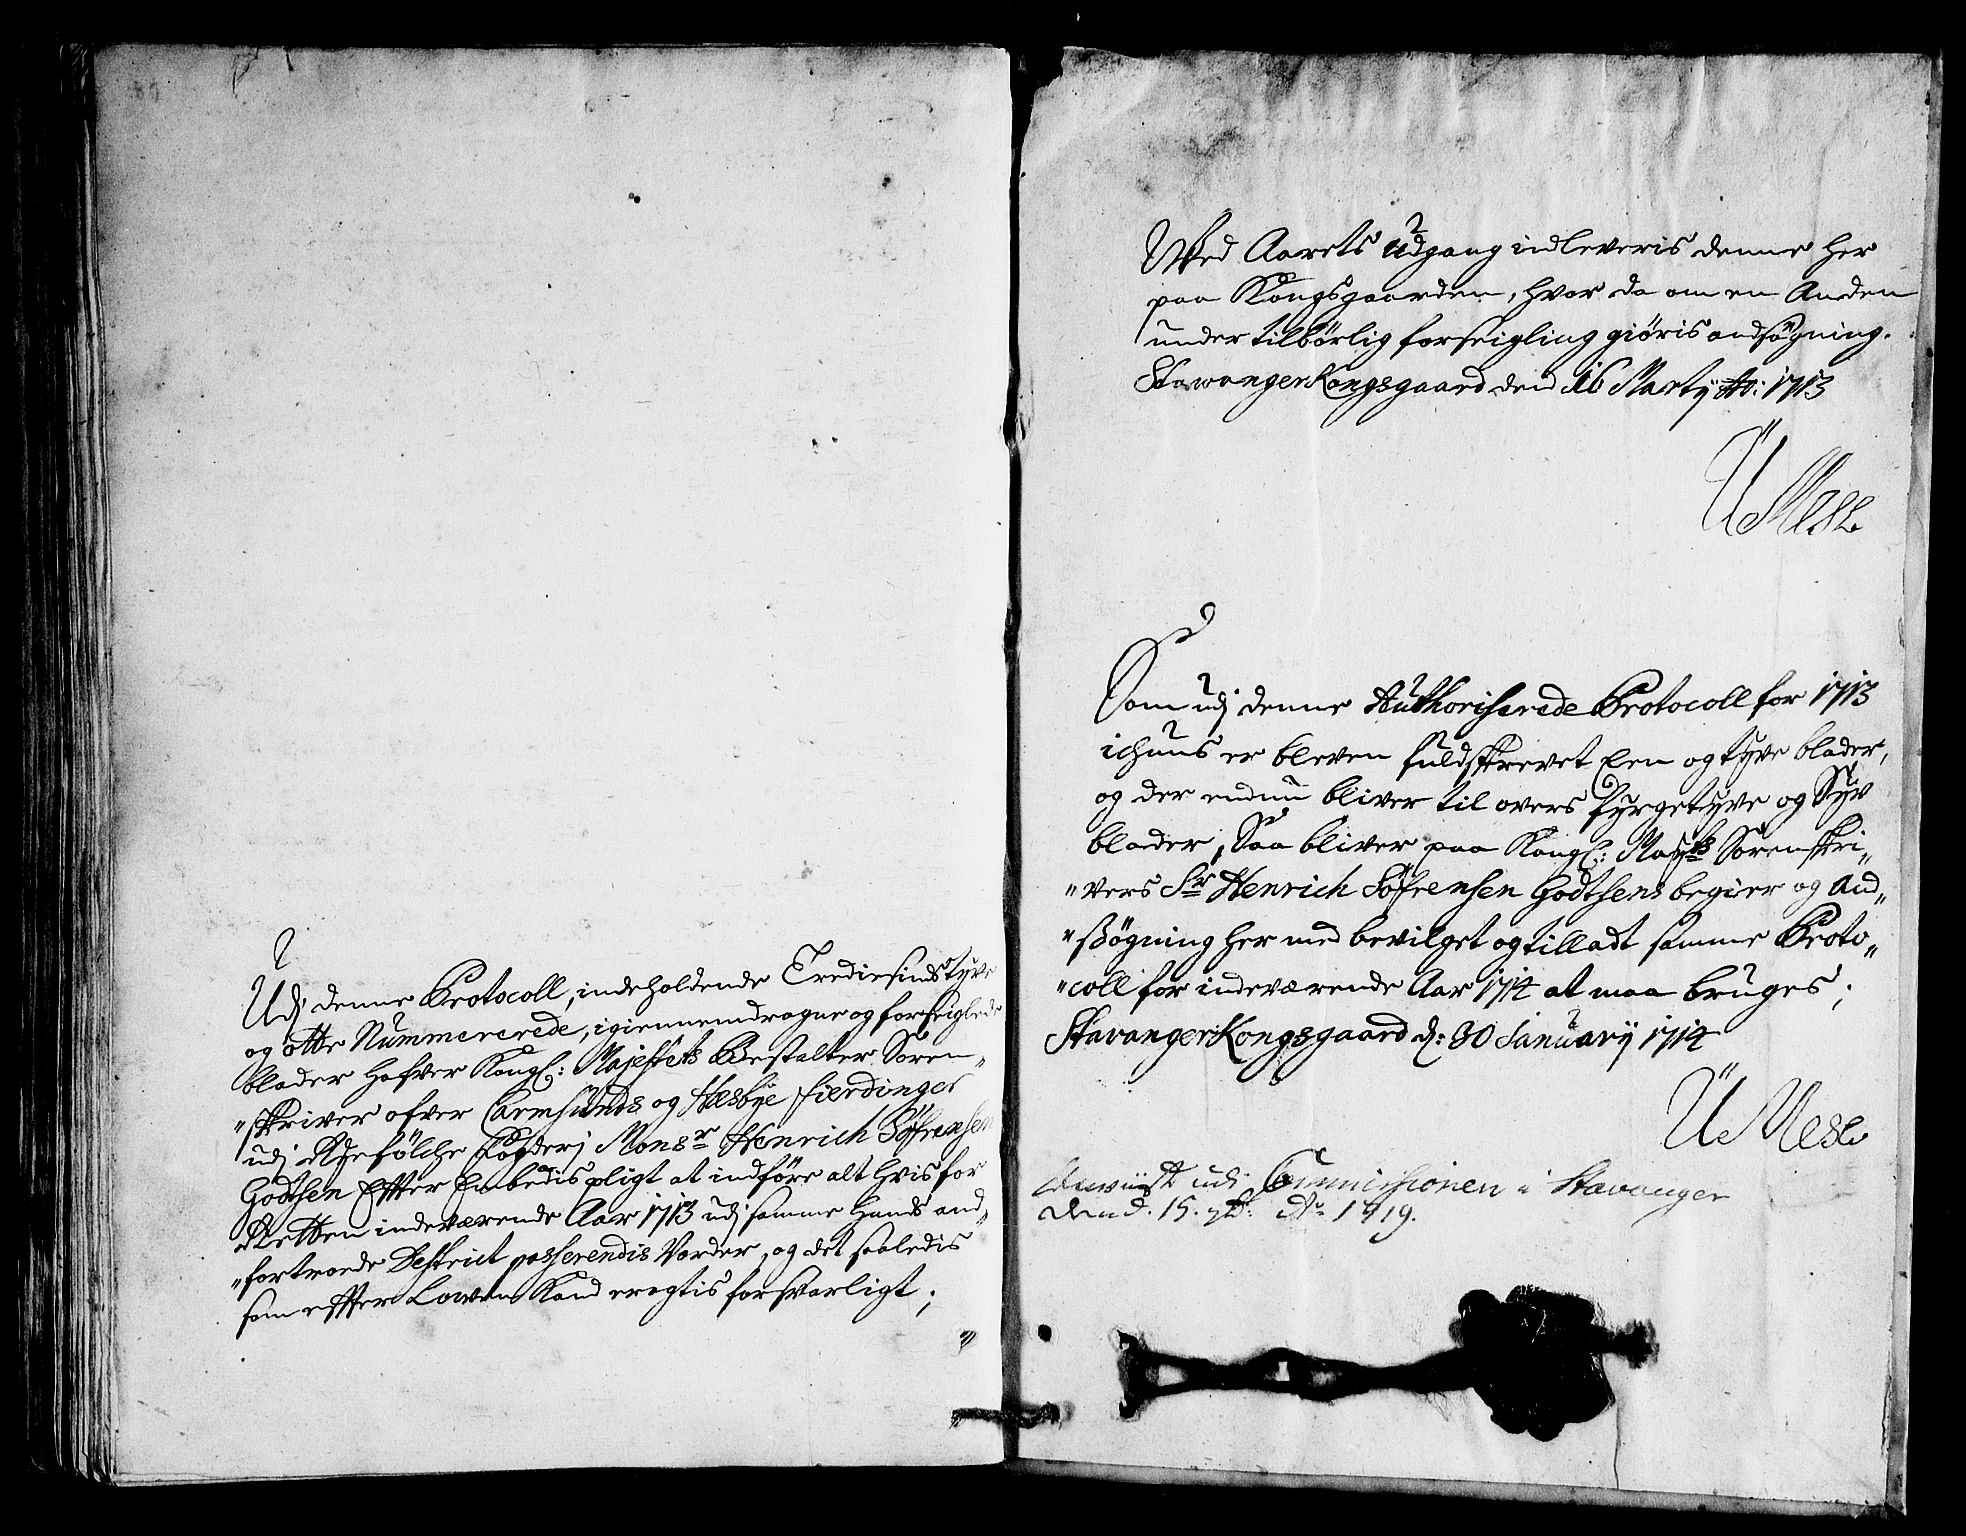 Udj denne Protocoll, indeholdende Trediesindstyve
og otte Nummererede, igiennemdragne og forseiglede
blader hafver Kongl: Majestets Bestalter Soren„
„skriver ofver Carmsunds og Hesbye fierdinger
udj Ryefölche Fogderj Monsr Henrich Söfrensen
Godtsen Effter Embedis pligt at indføre alt hvis for
Retten indeværende Aar 1713 udj samme hands and„
„fortroede Destrict passerendis Vorder, og det saaledis
som effter Lowen Kand eragtis forsvarligt;
Wed Aarets Udgang indleveris denne her
paa Kongsgaarden, hvor da om en Anden
under tilbörlig forseigling giöris andsögning.
StawangerKongsgaard den 16 Martij Ao: 1713
U Mese
Som udj denne Authoriserede Protocoll for 1713
ichuns er bleven fuldskrevet Een og tyve blader,
og der endnu bliver til overs fyrgetyve og Syv
blader, Saa bliver paa Kongl: Mayts Sorenskri„
„vers Sr Henrich Söfrensen Godtsens begier og And„
„sögning her med bevilget og tilladt samme Proto„
„coll for indeværende Aar 1714 at maa bruges;
StavangerKongsgaard d: 30 January 1714
U Mese
udi Commissionen i Stavanger
dend. 15. Ao 1719.